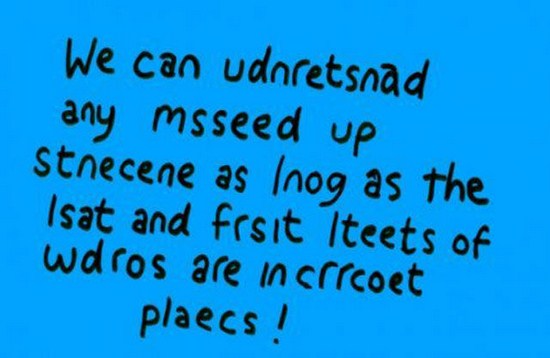 We can udnretsnad
any msseed up
stnecene as lnog as the
lsat and frsit lteets of
wdros are incrrcoet
plaecs!